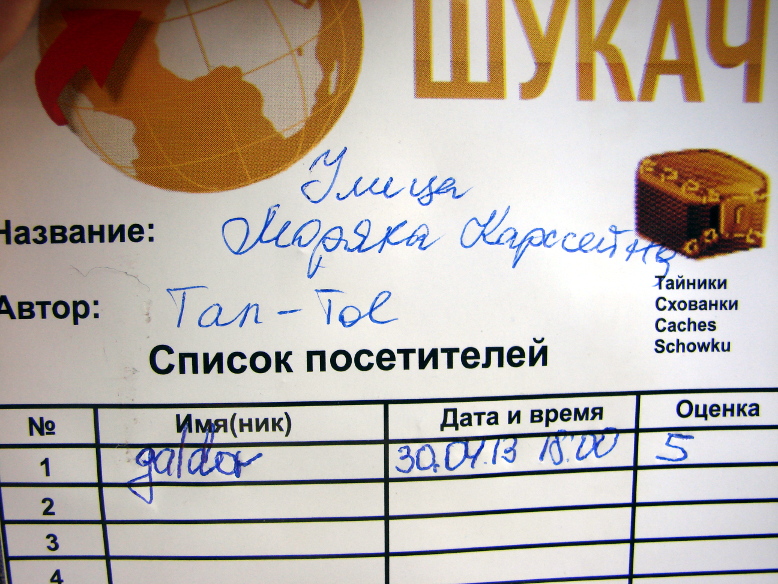 ШУКАЧ
Улица
Название: Моряка Карссейна
Тайники
Схованки
Caches
Schowku
Автор: Tan-Tol
Список посетителей
№ Имя(ник) Дата и время Оценка
1 galdor 30.04.13 18:00 5
2
3
4